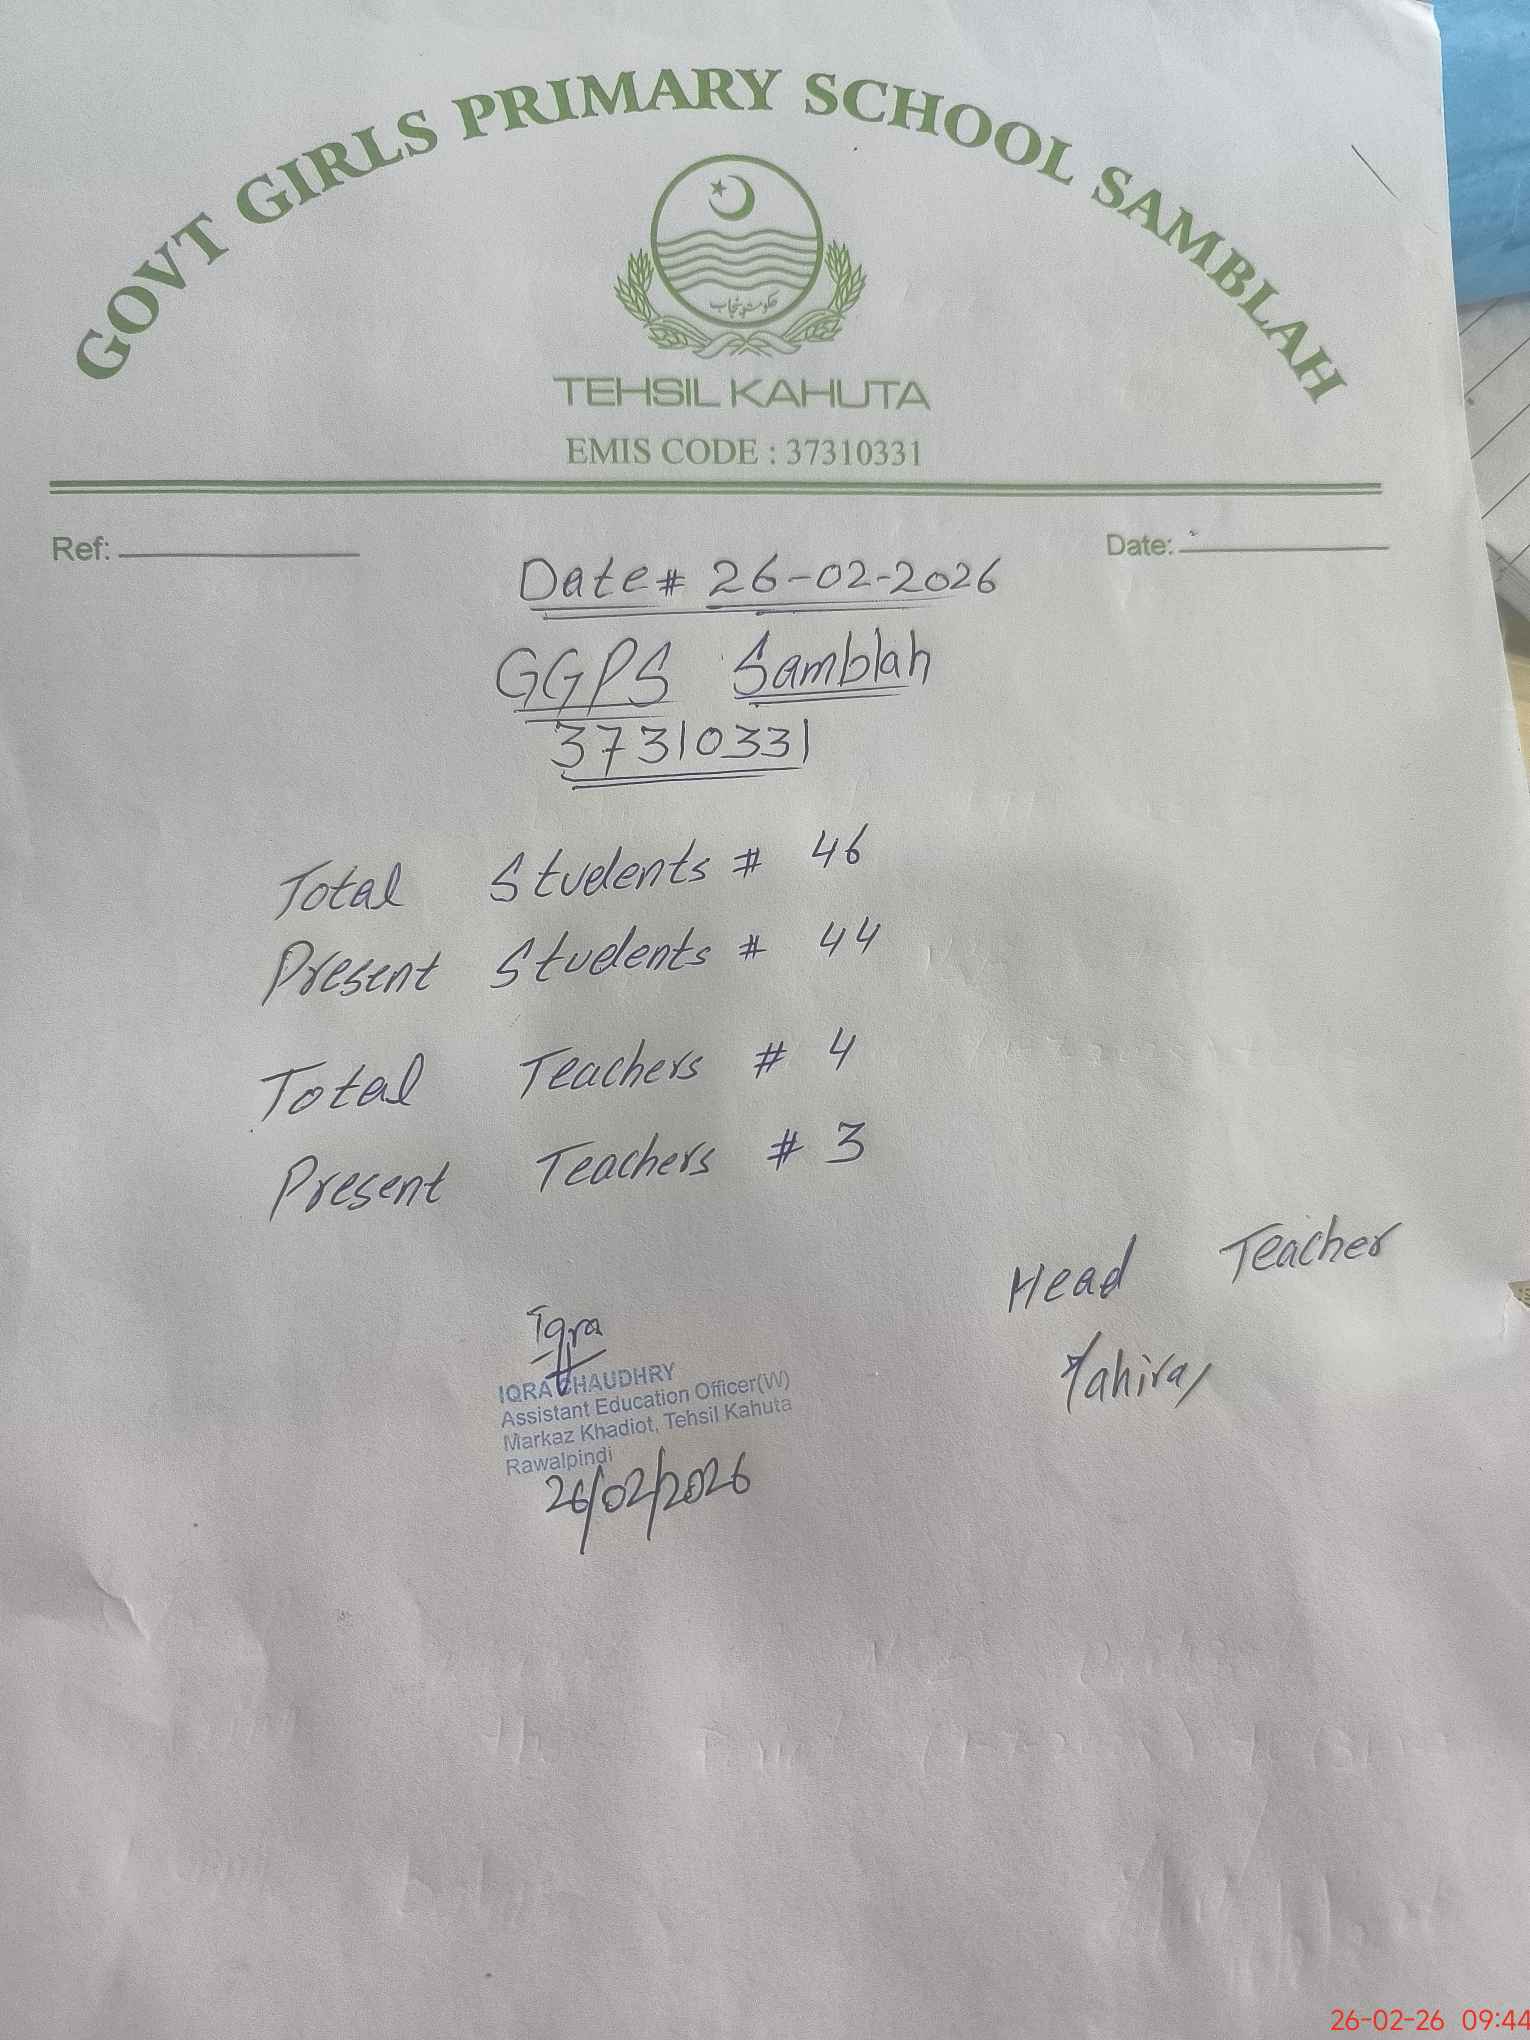 GOVT GIRLS PRIMARY SCHOOL SAMBLAH
حکومت پنجاب
TEHSIL KAHUTA
EMIS CODE : 37310331
Ref:
Date:
Date# 26-02-2026
GGPS Samblah
37310331
Total Students # 46
Present Students # 44
Total Teachers # 4
Present Teachers # 3
Head Teacher
Tahira
Iqra
IQRA CHAUDHRY
Assistant Education Officer(W)
Markaz Khadiot, Tehsil Kahuta
Rawalpindi
26/02/2026
26-02-26 09:44